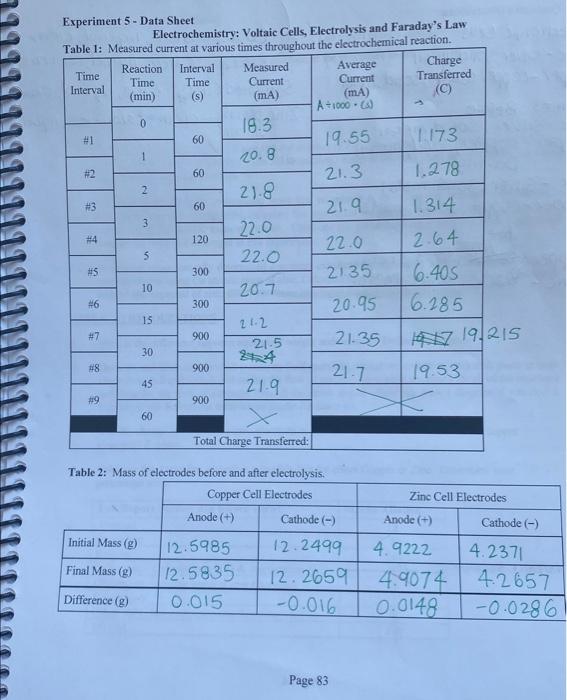 Experiment 5 - Data Sheet
Electrochemistry: Voltaic Cells, Electrolysis and Faraday's Law
Table 1: Measured current at various times throughout the electrochemical reaction.
Time Interval Reaction Time (min) Interval Time (s) Measured Current (mA) Average Current (mA) Charge Transferred (C)
A÷1000 · (s) →
0 18.3
#1 60 19.55 1.173
1 20.8
#2 60 21.3 1.278
2 21.8
#3 60 21.9 1.314
3 22.0
#4 120 22.0 2.64
5 22.0
#5 300 21.35 6.405
10 20.7
#6 300 20.95 6.285
15 21.2
#7 900 21.35 19.215
30 21.5
#8 900 21.7 19.53
45 21.9
#9 900
60 X
Total Charge Transferred:
Table 2: Mass of electrodes before and after electrolysis.
Copper Cell Electrodes Zinc Cell Electrodes
Anode (+) Cathode (−) Anode (+) Cathode (−)
Initial Mass (g) 12.5985 12.2499 4.9222 4.2371
Final Mass (g) 12.5835 12.2659 4.9074 4.2657
Difference (g) 0.015 -0.016 0.0148 -0.0286
Page 83